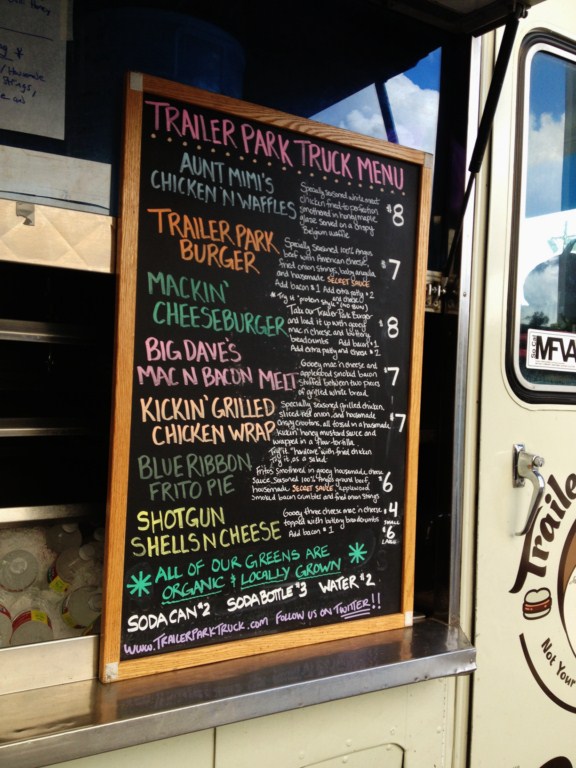 TRAILER PARK TRUCK MENU
AUNT MIMI'S
CHICKEN 'N WAFFLES
Specially seasoned white meat
chicken fried to perfection
smothered in honey maple
glaze served on a crispy
Belgium waffle
$8
TRAILER PARK
BURGER
Specially Seasoned 100% Angus
beef with American cheese,
fried onion strings, baby arugula
and housemade SECRET SAUCE
Add bacon $1 Add extra patty $2
and cheese
* Try it "protein style" (no bun)
$7
MACKIN'
CHEESEBURGER
Take our Trailer Park Burger
and load it up with gooey
mac n' cheese, and buttery
breadcrumbs Add bacon $1
Add extra patty and cheese $2
$8
BIG DAVE'S
MAC N BACON MELT
Gooey mac 'n cheese and
applewood smoked bacon
stuffed between two pieces
of grilled white bread.
$7
KICKIN' GRILLED
CHICKEN WRAP
Specially seasoned grilled chicken,
sliced red onion, and housemade
crispy croutons, all tossed in a housemade
kickin' honey mustard sauce and
wrapped in a flour tortilla.
Try it "hardcore" with fried chicken
Try it as a salad
$7
BLUE RIBBON
FRITO PIE
Fritos smothered in gooey housemade cheese
sauce, seasoned 100% Angus ground beef,
housemade SECRET SAUCE, applewood
smoked bacon crumbles and fried onion strings
$6
SHOTGUN
SHELLS N CHEESE
Gooey three cheese mac 'n cheese
topped with buttery breadcrumbs
Add bacon $1
$4
SMALL
$6
LARGE
* ALL OF OUR GREENS ARE *
ORGANIC & LOCALLY GROWN
SODA CAN $2 SODA BOTTLE $3 WATER $2
WWW.TRAILERPARKTRUCK.COM FOLLOW US ON TWITTER!!
MFVA
Traile
Not Your